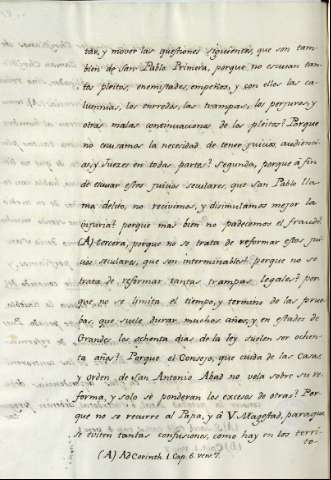 tar, y mover las questiones siguientes, que son tam-
bien de San Pablo. Primera, porque no escusan tan-
tos pleitos, enemistades, empeños, y con ellos las ca-
lumnias, los enredos, las trampas, los perjuros, y
otras malas continuaciones de los pleitos? Porque
no escusamos la necesidad de tener juicios, audienci-
as, y Juezes en todas partes? Segunda, porque à fin
de escusar estos juicios seculares, que San Pablo lla-
ma delito, no recivimos, y disimulamos mejor la
injuria? porque mas bien no padecemos el fraude?
(A) tercera, porque no se trata de reformar estos jui-
cios seculares, que son interminables? porque no se
trata de reformar tantas trampas legales? por
que no se limita el tiempo, y termino de las prue-
bas, que suele durar muchos años, y en estados de
Grandes los ochenta dias de la ley suelen ser ochen-
ta años? Porque el Consejo, que cuida de las Casas
y orden de San Antonio Abad no vela sobre su re-
forma, y solo se ponderan los excesos de otras? Por-
que no se recurre al Papa, y à V. Magestad, paraque
se eviten tantas confusiones, como hay en los terri-
to-
(A) Ad Corinth. 1. Cap. 6. vers. 7.